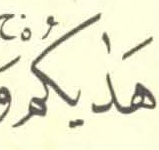 هَدٰيكُمْ وَ